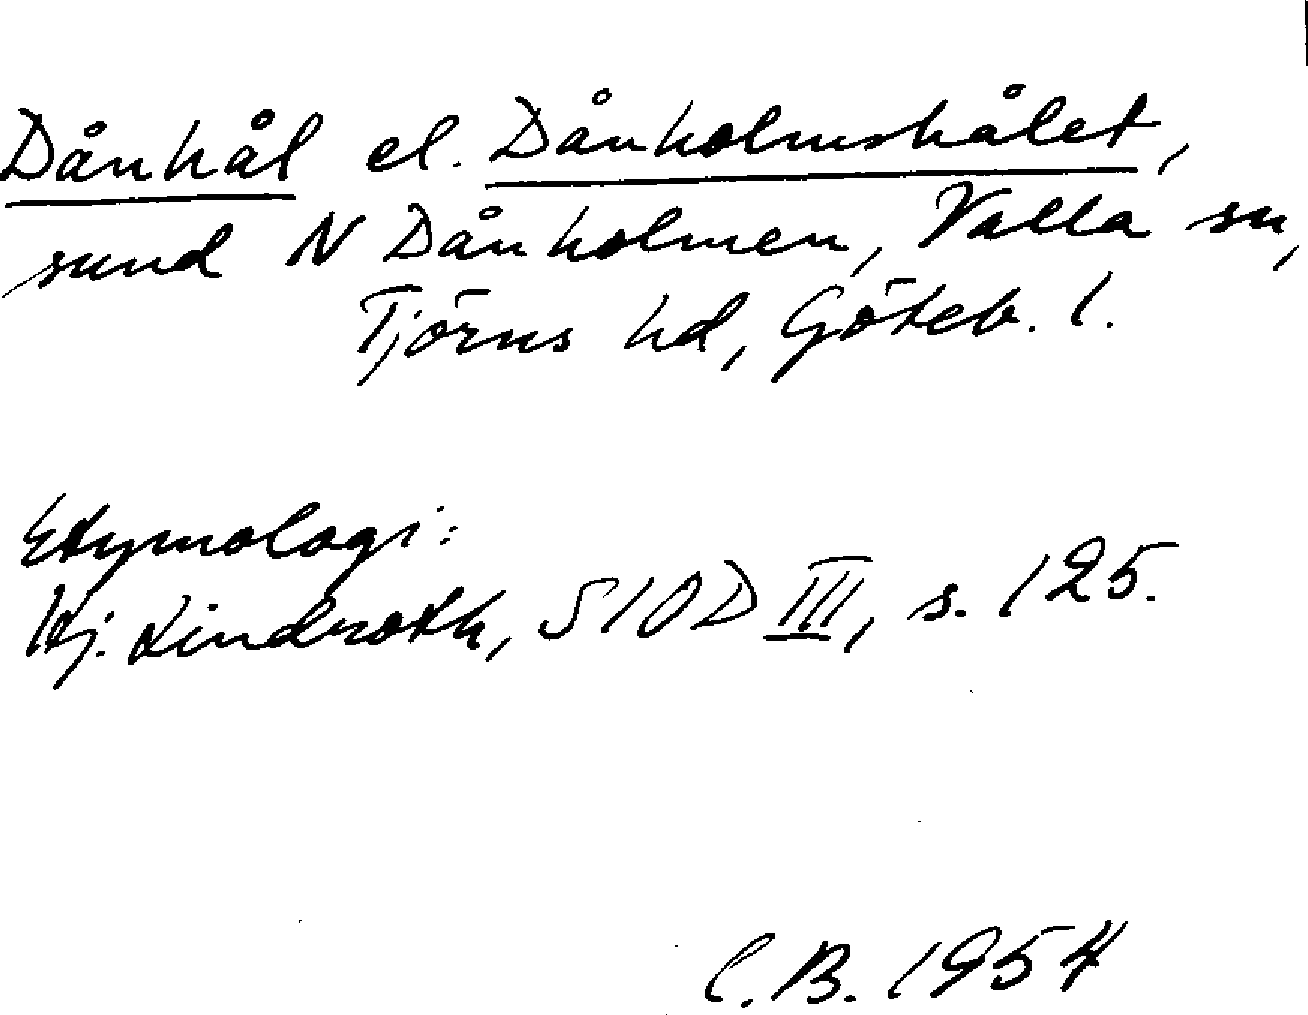 Dånhål el. Dånholmshålet,
sund N Dånholmen, Valla sn,
Tjörns hd, Göteb. l.
Etymologi:
Hj. Lindroth, SIOD III, s. 125.
C.B. 1954